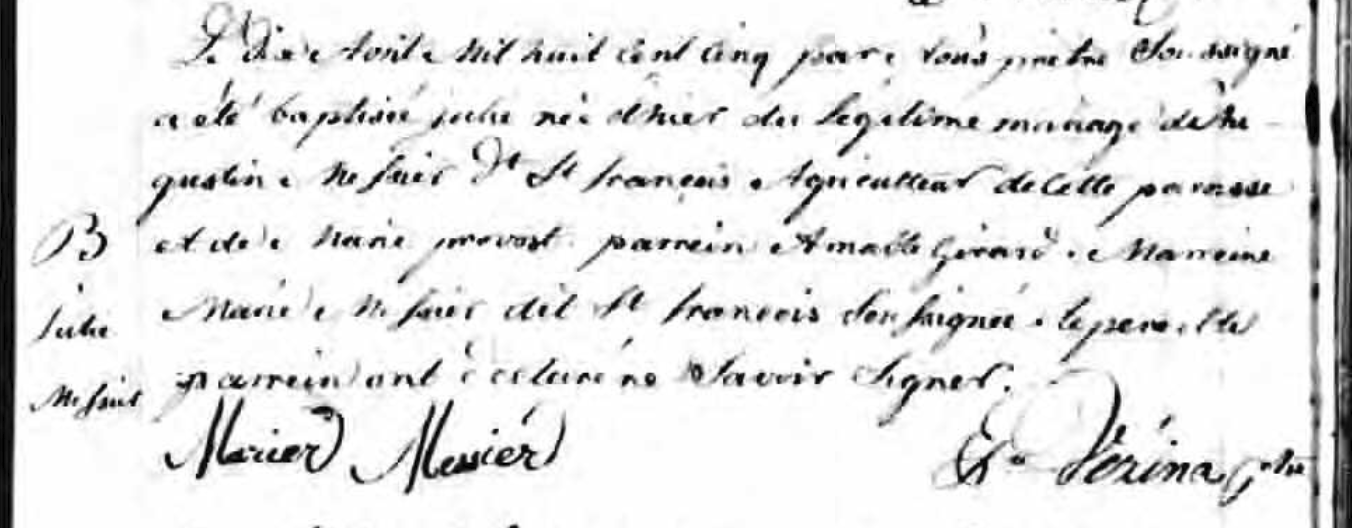 Le dix Avril Mil huit cent cinq par Nous prêtre Soussigné
a été baptisée julie née d'hier du légitime mariage d'Au
gustin Messier Dt St françois Agriculteur de Cette paroisse
et de Marie provost parrein Amable Girard Marreine
B
Marie Messier dit St françois Soussignée le pere et le
julie
parrein ont déclaré ne Savoir Signer.
Messier
Marier Messier Vézina ptre